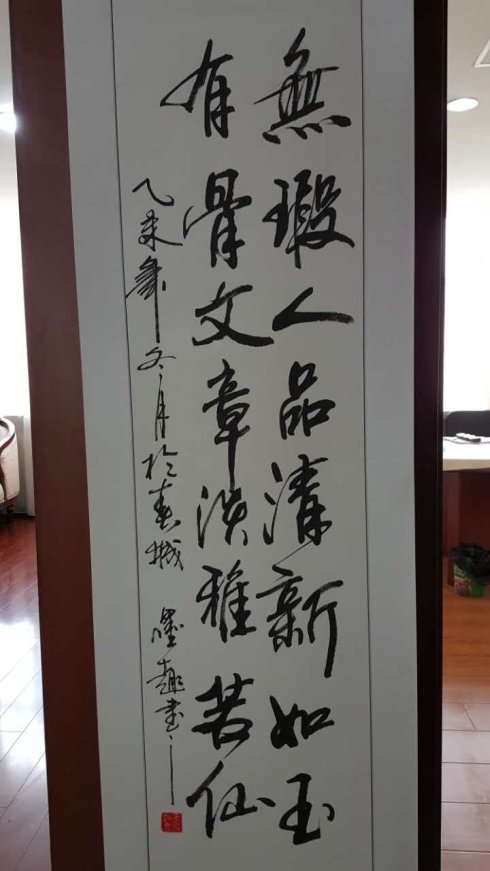 無瑕人品清新如玉
有骨文章淡雅若仙
乙未年冬月於春城 墨趣書